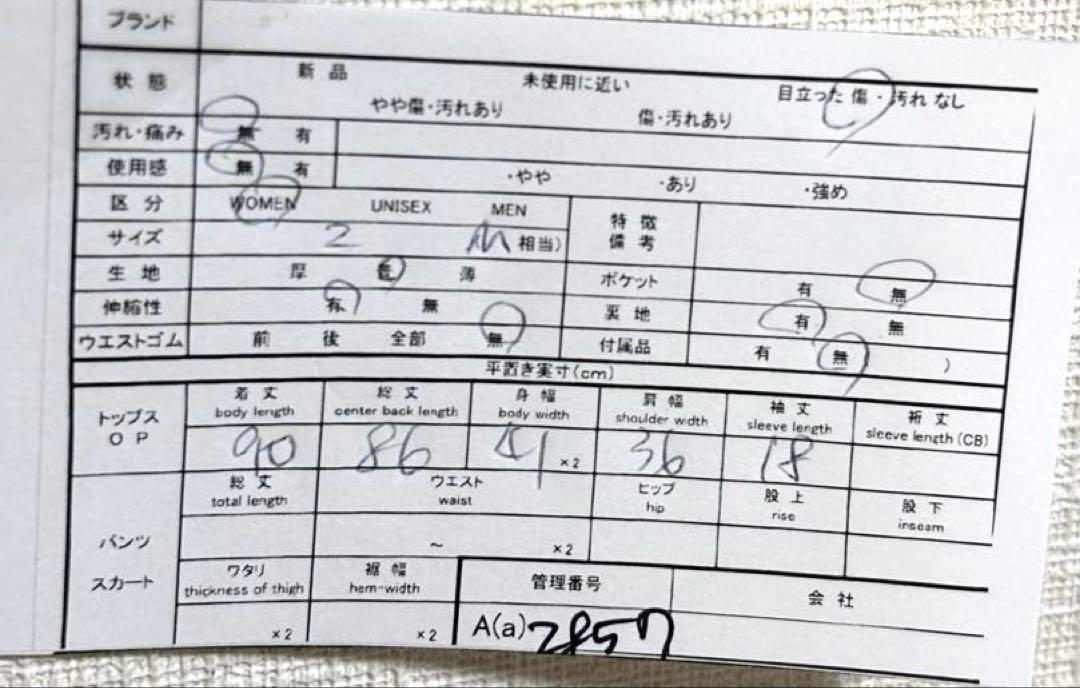 ブランド
状態 新品 未使用に近い 目立った傷・汚れなし
やや傷・汚れあり 傷・汚れあり
汚れ・痛み 無 有
使用感 無 有 ・やや ・あり ・強め
区分 WOMEN UNISEX MEN 特徴
備考
サイズ 2 M 相当)
生地 厚 普 薄 ポケット 有 無
伸縮性 有 無 裏地 有 無
ウエストゴム 前 後 全部 無 付属品 有 無 )
平置き実寸(cm)
トップス
OP
着丈 総丈 身幅 肩幅 袖丈 裄丈
body length center back length body width shoulder width sleeve length sleeve length (CB)
90 86 41 ×2 36 18
総丈 ウエスト ヒップ 股上 股下
total length waist hip rise inseam
パンツ ～ ×2
スカート ワタリ 裾幅 管理番号 会社
thickness of thigh hem-width
×2 ×2 A(a) 2857